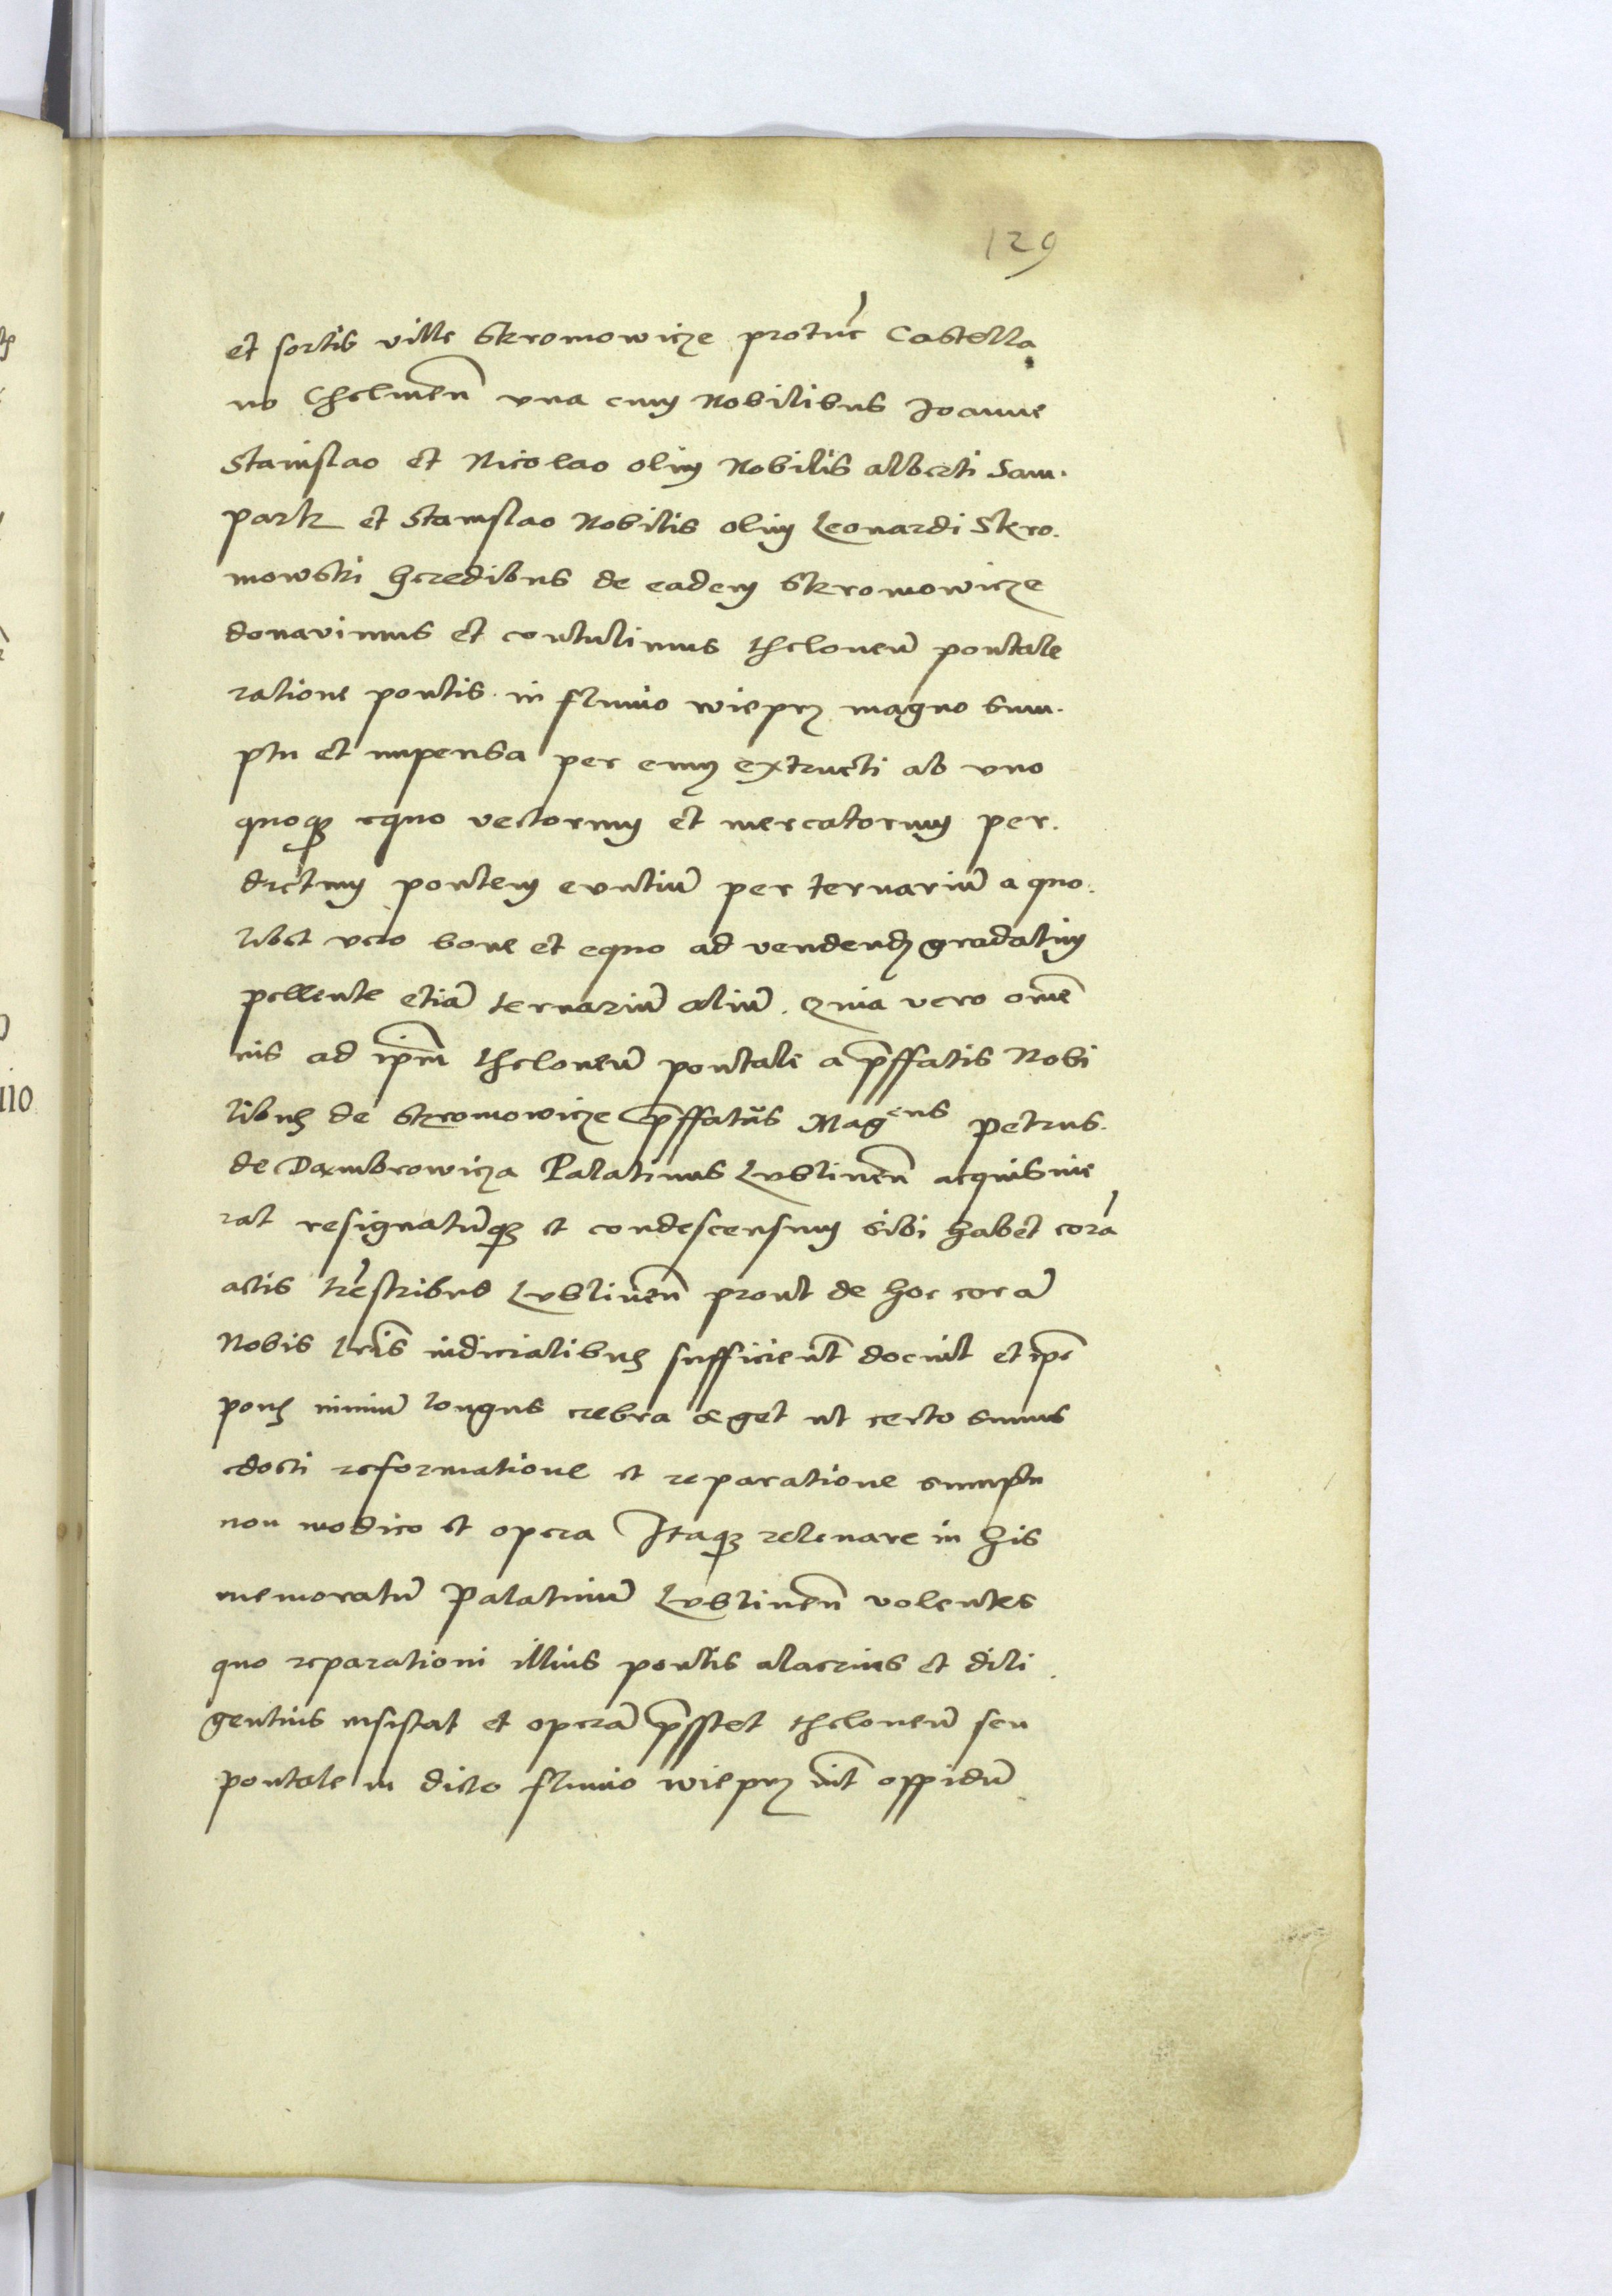 129
et sortis ville Skromowicze protūc Castella
no Chelmen̄ vna cum Nobilibus Joanne
Stanislao et Nicolao olim Nobilis alberti Sam.
park et Stanislao Nobilis olim Leonardi Skro.
mowski heredibus de eadem Skromowicze
donavimus et contulimus theloneū pontale
ratione pontis in fluuio wieprz magno sum.
ptu et impensa per eum extructi ab vno
quoqȝ equo vectorum et mercatorum per.
dictum pontem euntiū per ternariū a quo.
libet vero bove et equo ad vendendȝ gradatim
pellente etiā ternariū aliū. Quia vero om̄e
ius ad ip̄m theloneū pontale a p̄ffatis Nobi
libus de Skromowicze p̄ffatus Magcus Petrus.
de Dambrowicza Palatinus Lublinen̄ acquisiue
rat resignatūqȝ et condescensum sibi habet corā
actis tr̄estribus Lublinen̄ prout de hoc corā
Nobis lr̄is iudicialibus sufficient̄ docuit et ip̄e
pons nimiū longus crebra eget ut certo sumus
edocti reformatione et reparatione sumptu
non modico et opera Itaqȝ releuare in his
memoratū Palatinū Lublinen̄ volentes
quo reparationi illius pontis alacrius et dili.
gentius insistat et operā p̄sstet theloneū seu
pontale in dicto fluuio wieprz int̄ oppidū
110